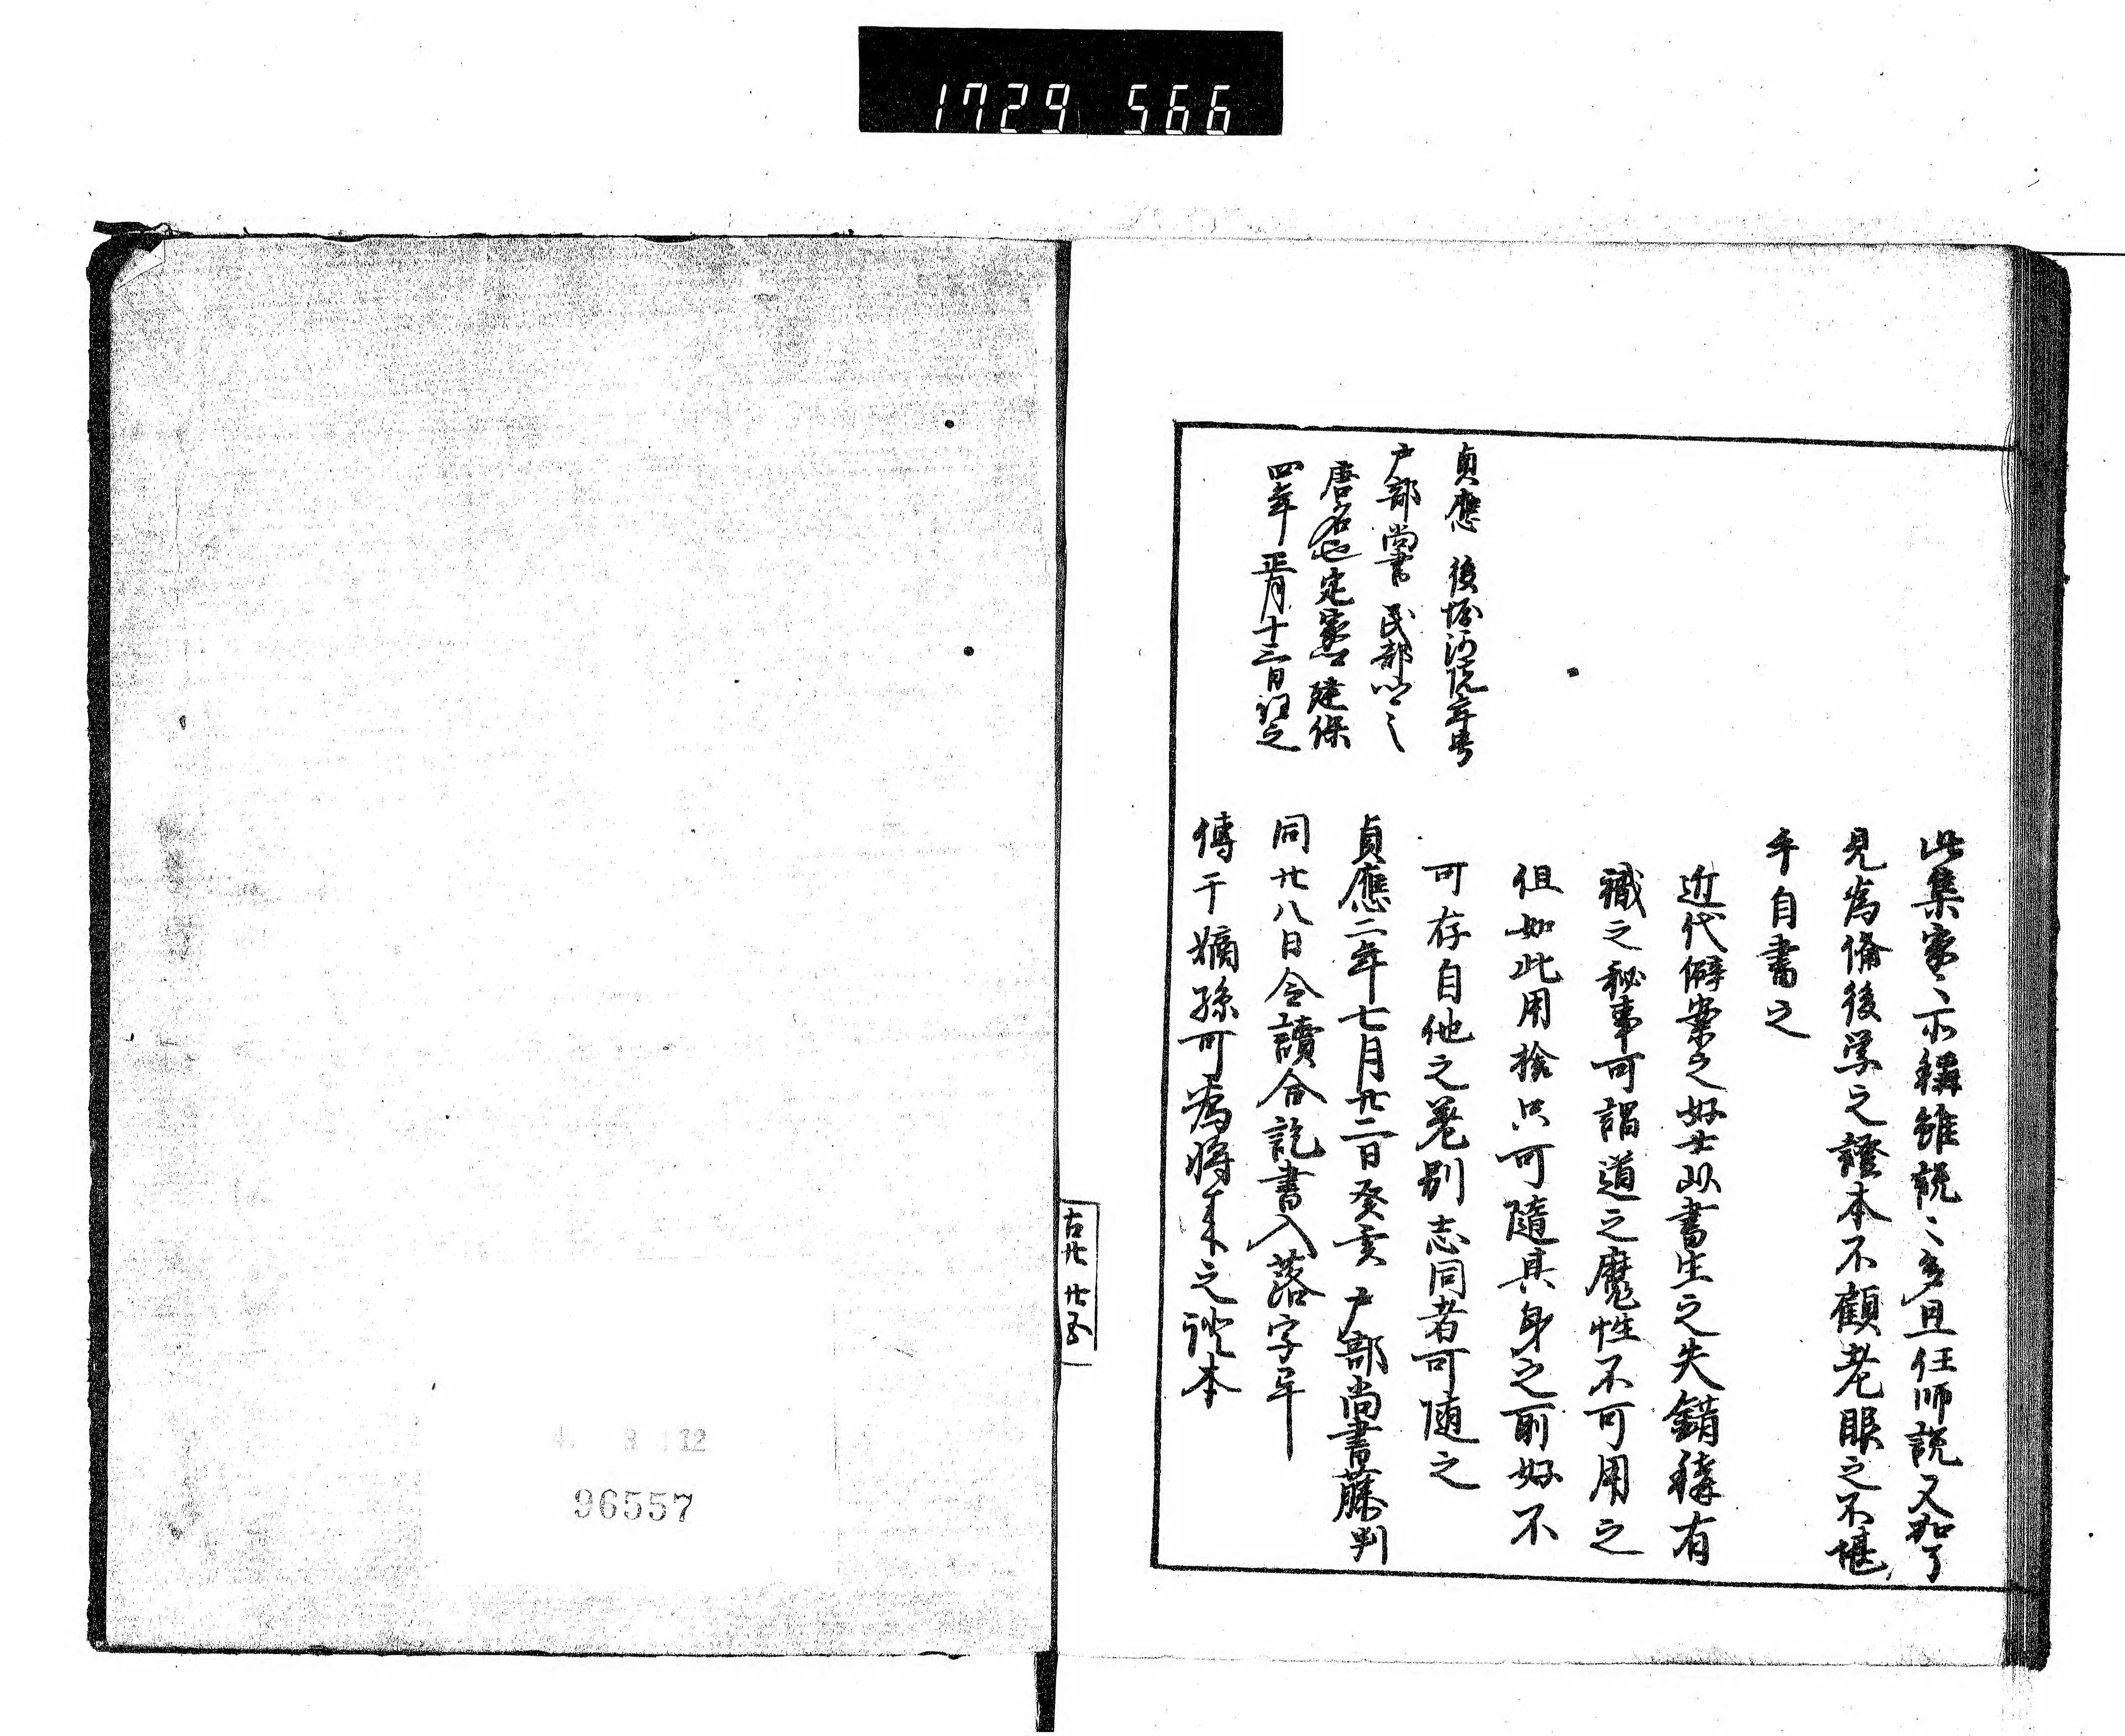 1729 566
此集家〻所稱雖説〻多且任師説又加了
見為備後学之證本不顧老眼之不堪
手自書之
近代僻案之好士以書生之失錯稱有
識之秘事可謂道之魔性不可用之
但如此用捨只可隨其身之所好不
可存自他之差別志同者可随之
貞應二年七月廿二日癸亥 戸部尚書藤判
同廿八日令讀合訖書入落字畢
傳于嫡孫可為将来之證本
貞應 後堀河院年号
戸部尚書 民部
唐名也定家 建保
四年正月十三日 任之
古廿 廿五
4. 3 12
96557